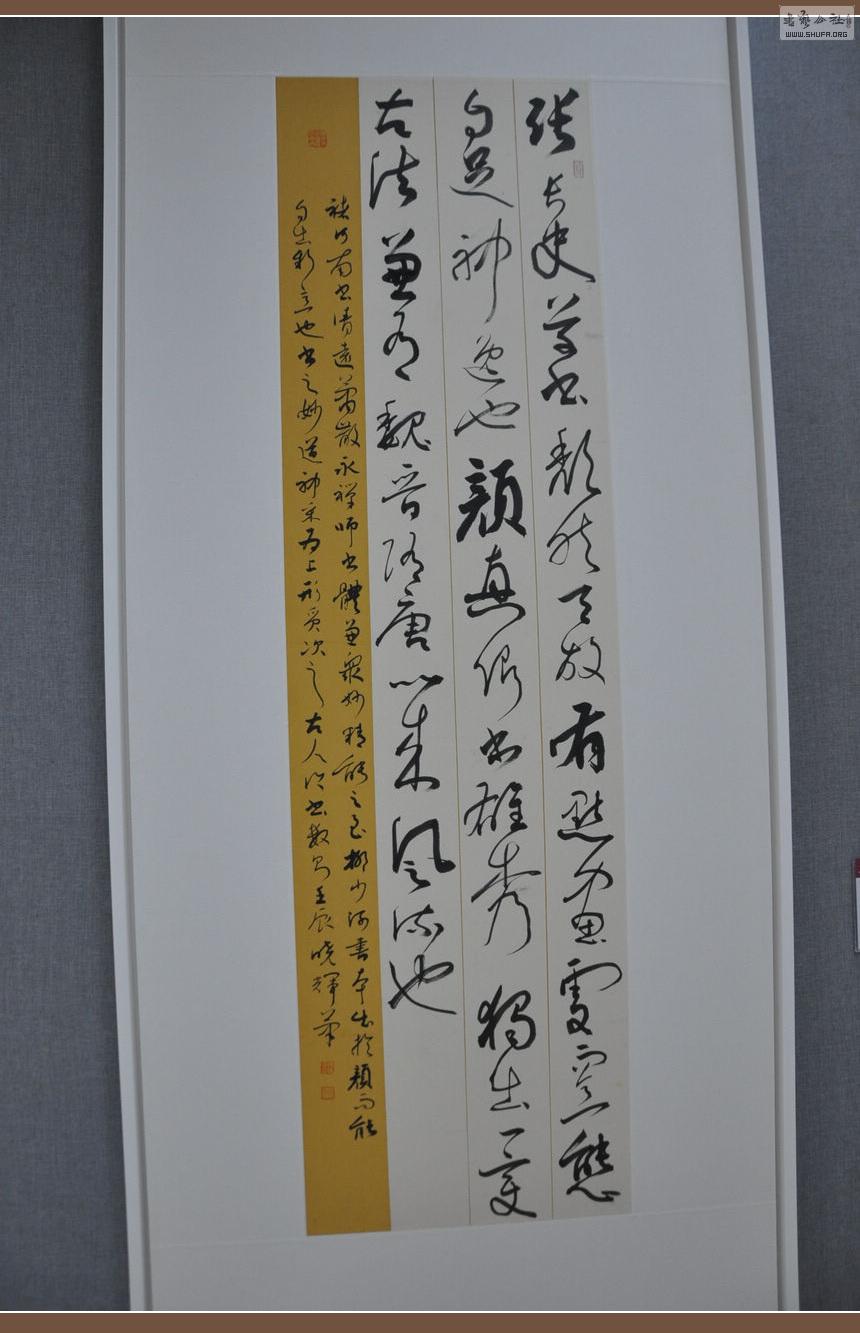 張長史草書頹然天放有點畫處意態
自足神逸也顏真卿書雄秀獨出一變
古法兼有魏晉隋唐以來風流也
褚河南書清遠蕭散永禪師書體兼眾妙精能之至柳少師書本出於顏而能
自出新意也書之妙道神采為上形質次之古人論書數則壬辰曉輝
书艺公社
WWW.SHUFA.ORG